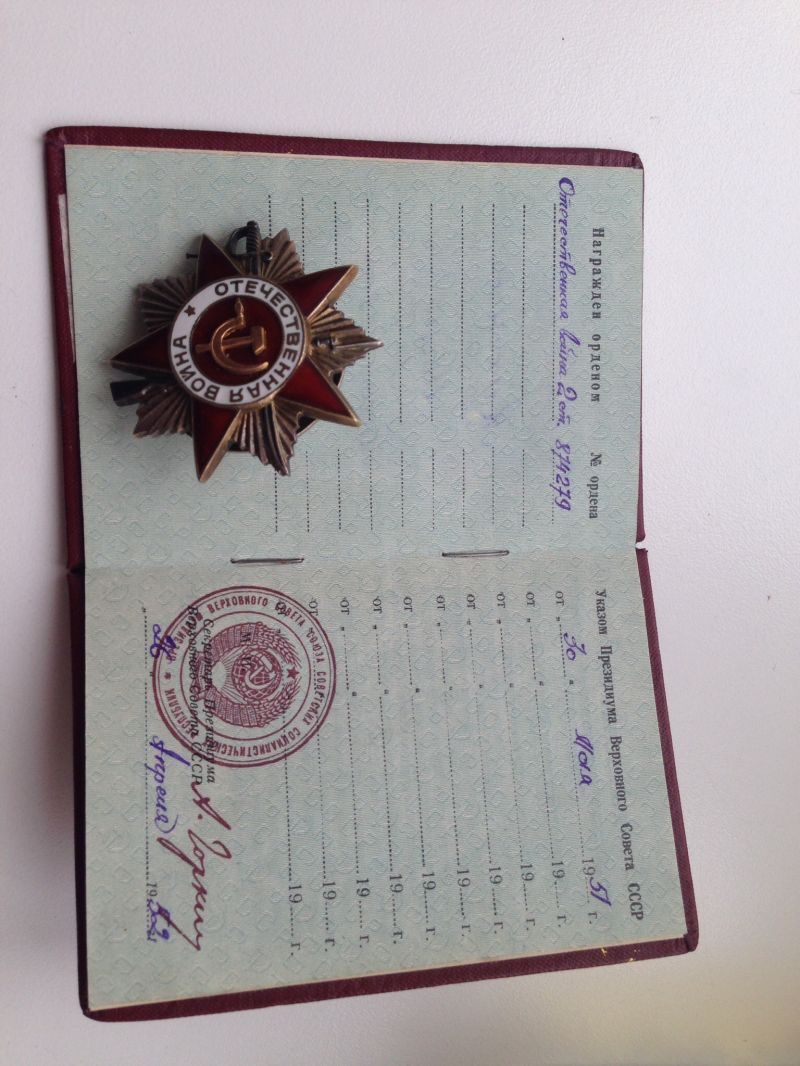 Награжден орденом № ордена
Отечественная война 2 ст. 874279
ОТЕЧЕСТВЕННАЯ ВОЙНА
Указом Президиума Верховного Совета СССР
от „30“ мая 1951 г.
от „ “ 19 г.
от „ “ 19 г.
от „ “ 19 г.
от „ “ 19 г.
от „ “ 19 г.
от „ “ 19 г.
от „ “ 19 г.
от 19 г.
от 19 г.
М. П.
Секретарь Президиума
Верховного Совета СССР
А. Горкин
ВЕРХОВНОГО СОВЕТА СОЮЗА СОВЕТСКИХ СОЦИАЛИСТИЧЕСКИХ РЕСПУБЛИК
Апреля 1952